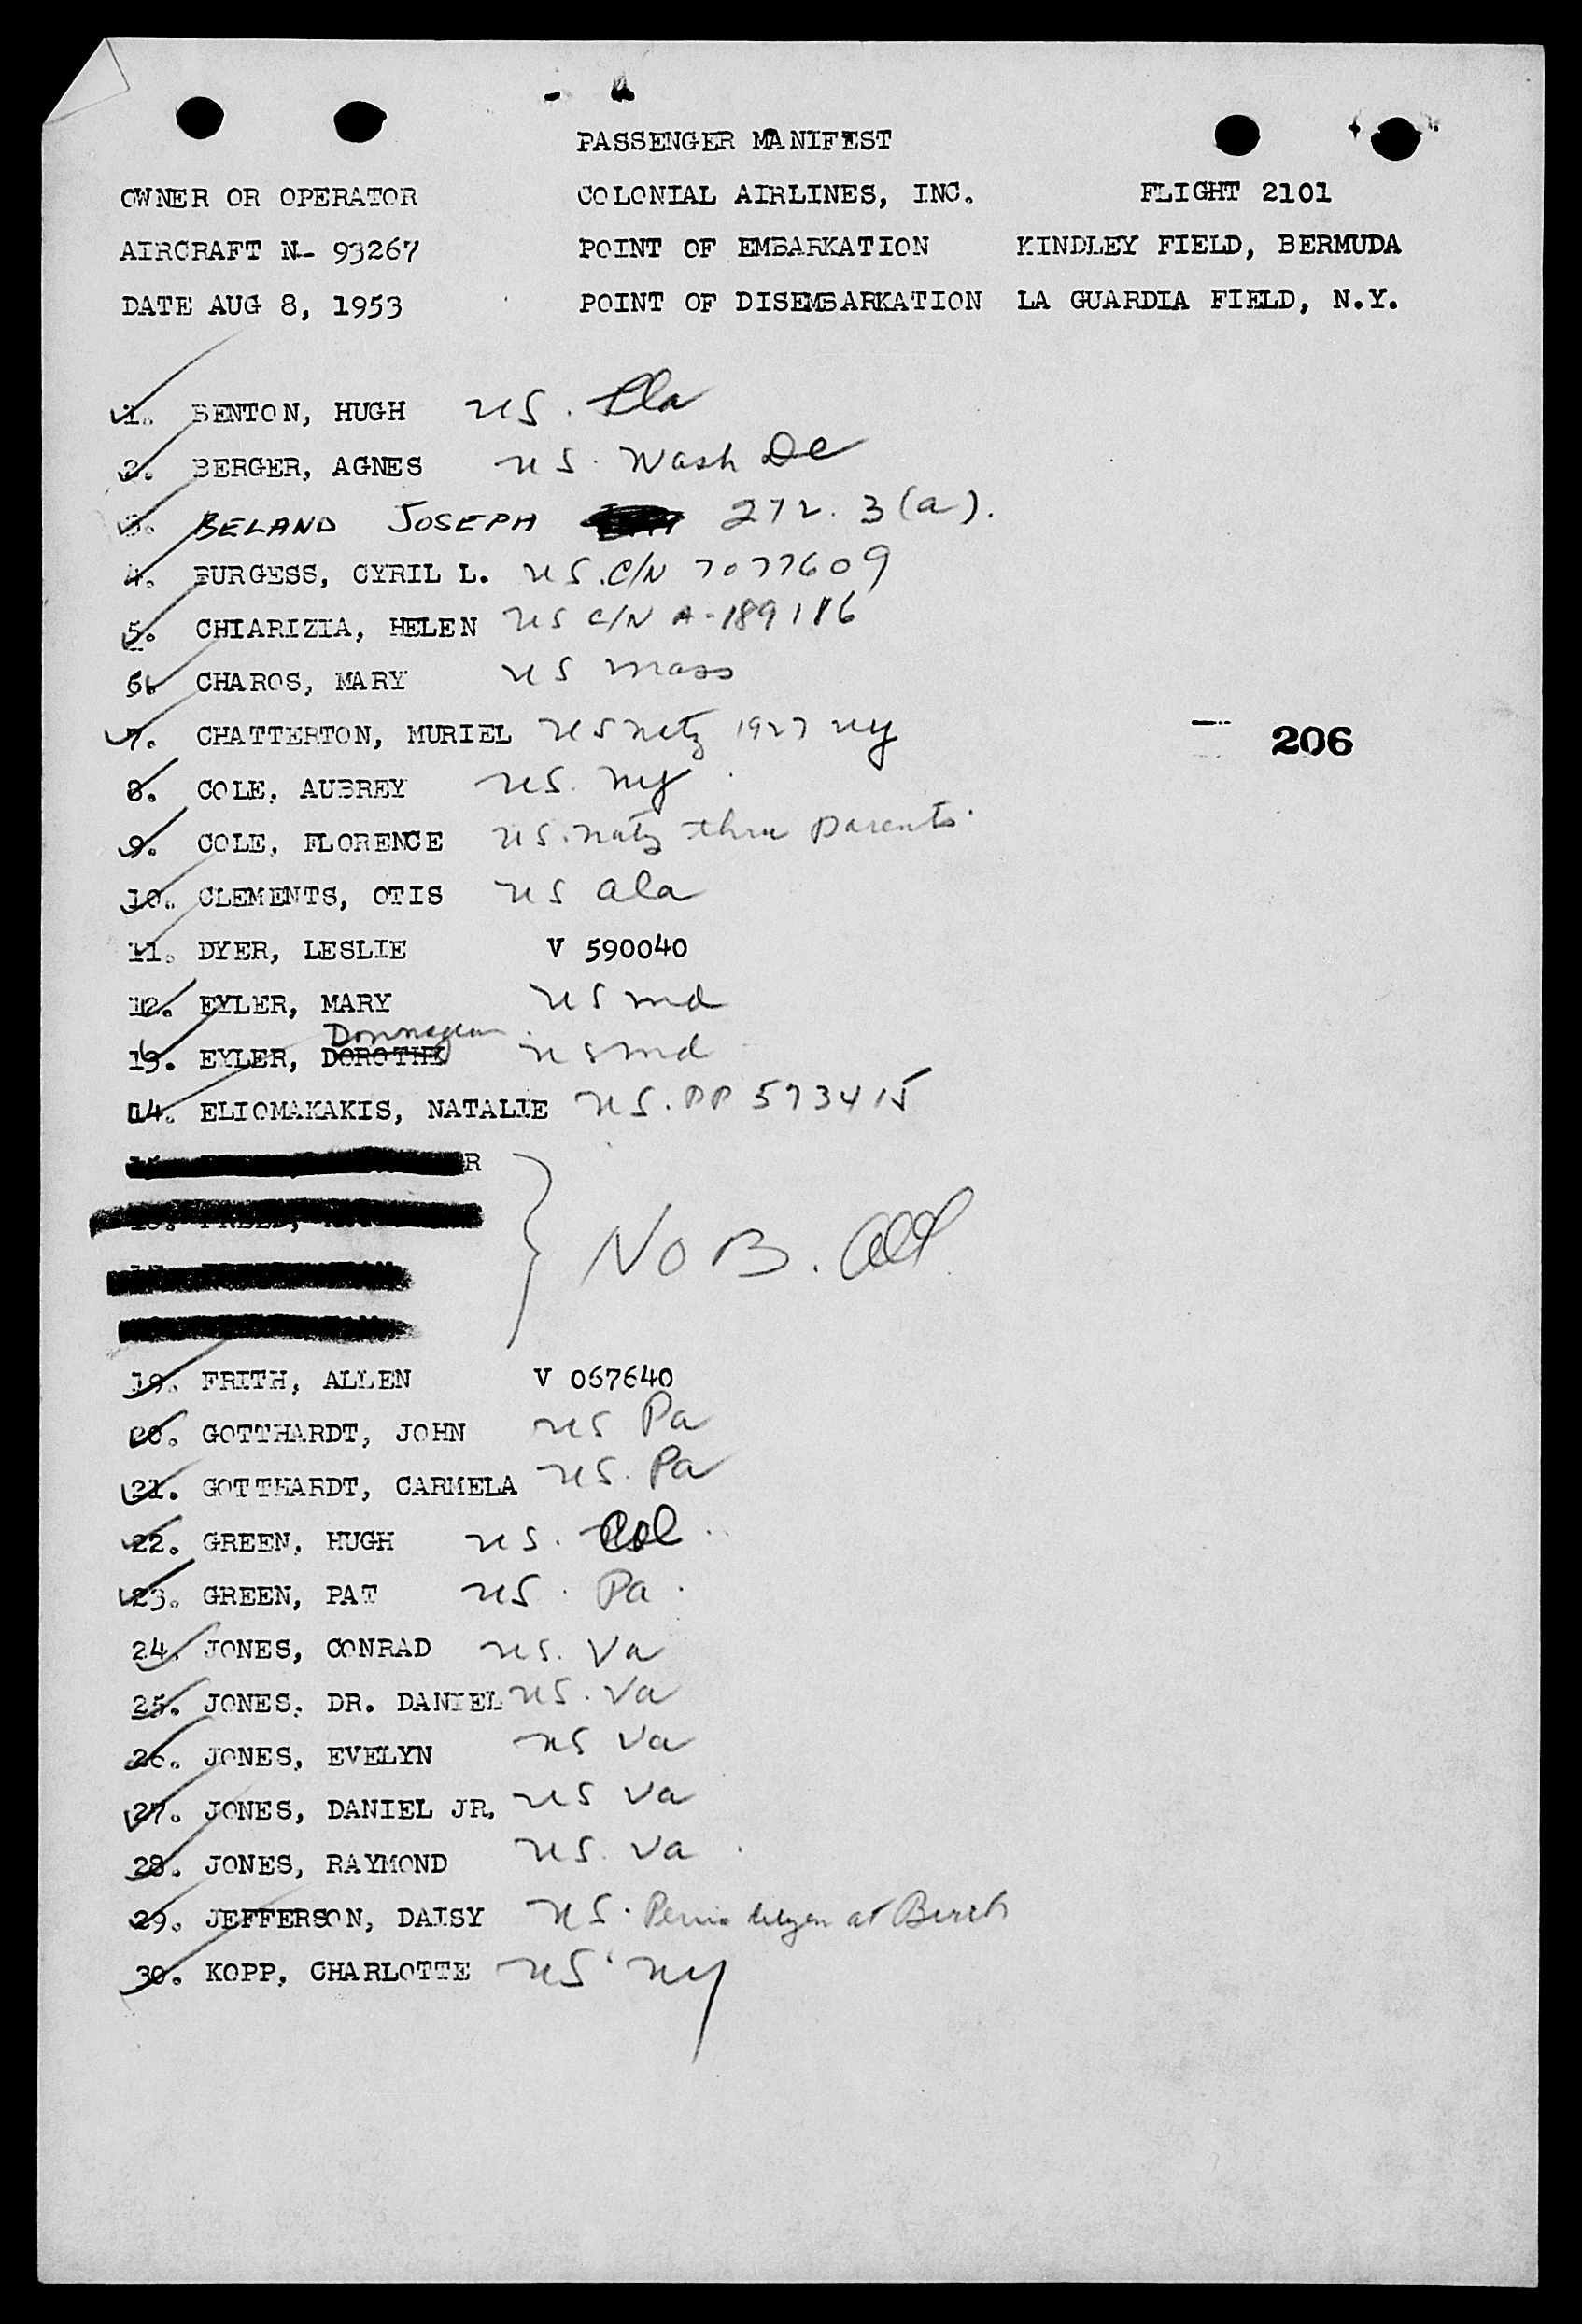 PASSENGER MANIFEST
OWNER OR OPERATOR COLONIAL AIRLINES, INC. FLIGHT 2101
AIRCRAFT N- 93267 POINT OF EMBARKATION KINDLEY FIELD, BERMUDA
DATE AUG 8, 1953 POINT OF DISEMBARKATION LA GUARDIA FIELD, N.Y.
1. BENTON, HUGH US.
2. BERGER, AGNES US. Wash DC
3. BELAND JOSEPH 272. 3(a).
4. BURGESS, CYRIL L. US. C/N 7077609
5. CHIARIZIA, HELEN US C/N A-189186
6. CHAROS, MARY US Mass
7. CHATTERTON, MURIEL US natz 1927 NY
206
8. COLE, AUBREY US. NY
9. COLE, FLORENCE US. natz thru parents.
10. CLEMENTS, OTIS US ala
11. DYER, LESLIE V 590040
12. EYLER, MARY US md
13. EYLER, DOROTHY Donnajean US md
14. ELIOMAKAKIS, NATALIE US. PP 573415
R
NOB.
19. FRITH, ALLEN V 067640
20. GOTTHARDT, JOHN US Pa
21. GOTTHARDT, CARMELA US. Pa
22. GREEN, HUGH US. Col.
23. GREEN, PAT US. Pa.
24. JONES, CONRAD US. Va
25. JONES, DR. DANIEL US. Va
26. JONES, EVELYN US Va
27. JONES, DANIEL JR. US Va
28. JONES, RAYMOND US. Va.
29. JEFFERSON, DAISY US. at Birth
30. KOPP, CHARLOTTE US. NY